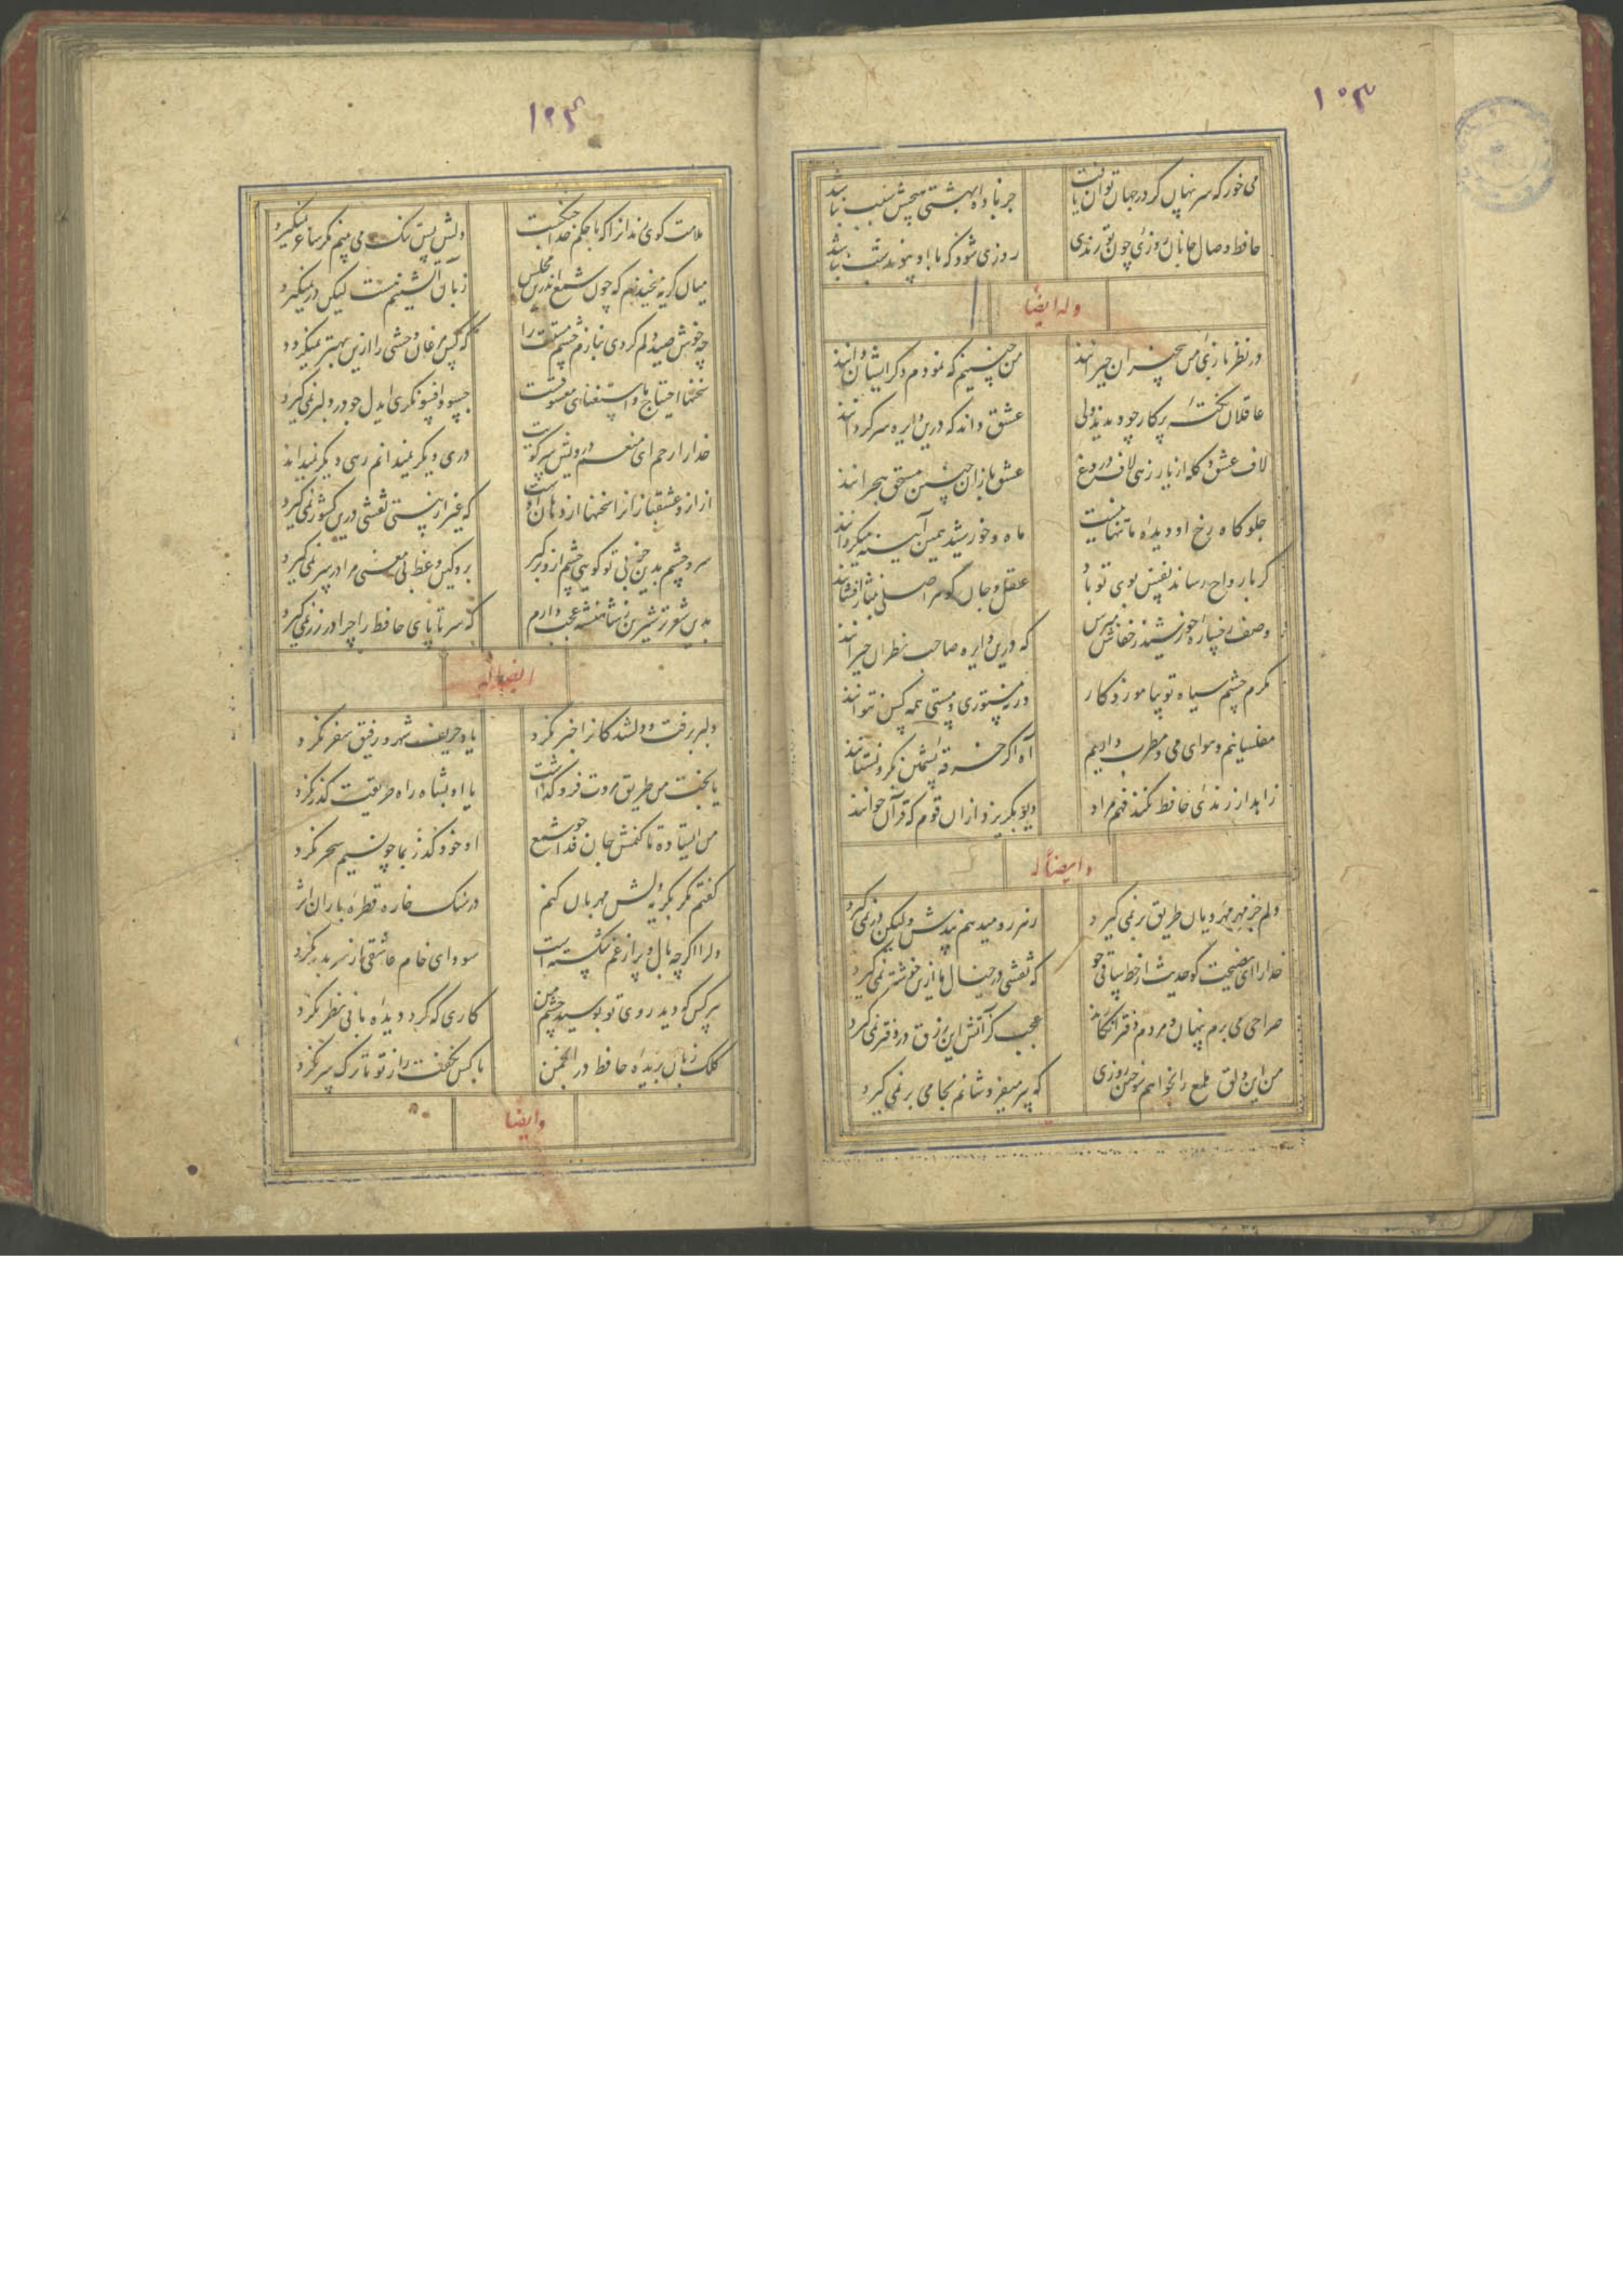 ۱۰۳
می خور که سر نهان گر در جهان توان یافت
جز باده بهشتی هیچش سبب نباشد
حافظ وصال جانان روزی چون تو رندی
روزی شود که با او پیوند شب نباشد
وله ایضا
در نظر بازئ من بیخبران حیرانند
من چنینم که نمودم دگر ایشان دانند
عاقلان نکته پرکار وجودند ولی
عشق داند که درین دایره سرگردانند
لاف عشق و گله از یار زهی لاف دروغ
عشق بازان چنین مستحق هجرانند
جلوه گاه رخ او دیده ما تنها نیست
ماه و خورشید همین آینه میگردانند
گر بارواح رساند نفس بوی تو باد
عقل و جان گوهر اصلی بنثار افشانند
وصف رخساره خورشید ز خفاش مپرس
که درین دایره صاحب نظران حیرانند
مگرم چشم سیاه تو بیاموزد کار
ورنه مستوری و مستی همه کس نتوانند
مفلسانیم و هوای می و مطرب داریم
آه اگر خرقه پشمین بگرو نستانند
زاهد ار رندئ حافظ نکند فهم مراد
دیو بگریزد ازان قوم که قرآن خوانند
وایضاً له
دلم جز مهر مهرویان طریق بر نمی گیرد
ز هر در میدهم پندش ولیکن در نمی گیرد
خدا را ای نصیحت گو حدیث از خط ساقی گو
که نقشی در خیال ما ازین خوشتر نمی گیرد
صراحی می برم پنهان و مردم دفتر انگارند
عجب گر آتش این زرق در دفتر نمی گیرد
من این دلق ملمع را بخواهم سوختن روزی
که پیر میفروشانم بجامی بر نمی گیرد
ملامت گوی ندانرا که با حکم خدا جنگست
دلش بس تنگ می بینم مگر ساغر نمیگیرد
میان گریه میخندم که چون شمع اندرین مجلس
زبان آتشینم هست لیکن در نمیگیرد
چه خوش صید دلم کردی بنازم چشم مستت را
که کس مرغان وحشی را ازین بهتر نمیگیرد
سخنها احتیاج ما و استغنای معشوقست
چسود افسونگری ایدل چو در دلبر نمی گیرد
خدا را رحم ای منعم که درویش سر کویت
دری دیگر نمیداند رهی دیگر نمیداند
که غیر از نیستی نقشی درین کشور نمی گیرد
سر و چشم بدین خوبی تو گویی چشم ازو برگیر
برو کین وعظ بی معنی مرا در سر نمی گیرد
بدین شعر تر شیرین ز شاهنشه عجب دارم
که سر تا پای حافظ را چرا در زر نمی گیرد
ایضاله
دلبر برفت و دلشدگانرا خبر نکرد
یاد حریف شهر و رفیق سفر نکرد
یا بخت من طریق مروت فرو گذاشت
یا او بشاه راه طریقت گذر نکرد
من ایستاده تا کنمش جان فدا چو شمع
او خود گذر بما چو نسیم سحر نکرد
گفتم مگر بگریه دلش مهربان کنم
در سنگ خاره قطره باران اثر
دلرا اگرچه بال و پر از غم شکسته است
سودای خام عاشقی از سر بدر نکرد
هر کس که دید روی تو بوسید چشم من
کاری که کرد دیده ما بی نظر نکرد
کلک زبان بریده حافظ در انجمن
با کس نگفت راز تو تا ترک سر نکرد
وایضا